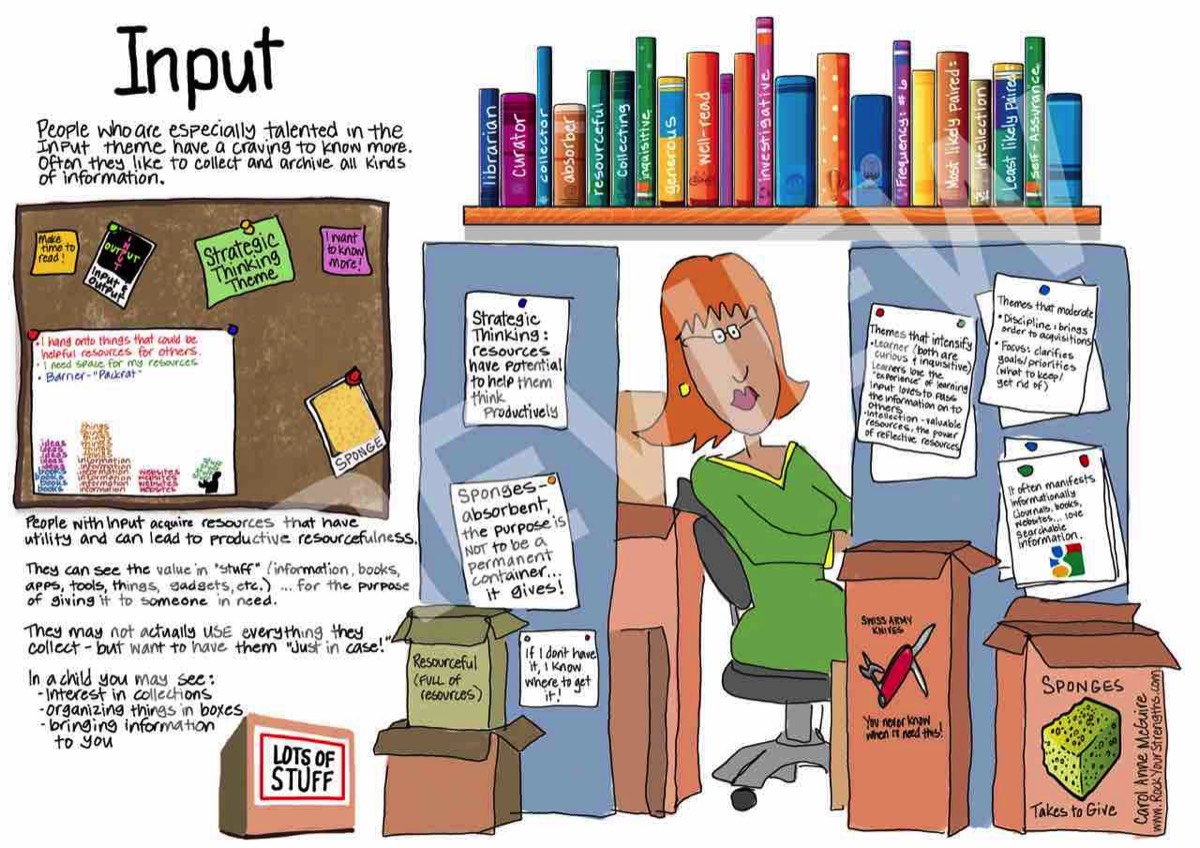 Input
People who are especially talented in the
Input theme have a craving to know more.
Often they like to collect and archive all kinds
of information.
librarian
Curator
collector
absorber
resourceful
Collecting
inquisitive
generous
Well-read
investigative
Frequency: # 6
Most likely Paired:
intellection
Least likely Paired
Self-Assurance
Make
time to
read!
INPUT
OUTPUT
Input &
Output
Strategic
Thinking
Theme
I want
to know
more!
• I hang onto things that could be
helpful resources for others.
• I need space for my resources
• Barrier - "Packrat"
things
things
things
things
ideas
ideas
ideas
ideas
books
books
books
books
information
information
information
information
information
websites
websites
websites
websites
SPONGE
People with Input acquire resources that have
utility and can lead to productive resourcefulness.
They can see the value in "stuff" (information, books,
apps, tools, things, gadgets, etc.) ... for the purpose
of giving it to someone in need.
They may not actually USE everything they
collect - but want to have them "Just in case!"
In a child you may see:
- Interest in collections
- organizing things in boxes
- bringing information
to you
LOTS OF
STUFF
Strategic
Thinking:
resources
have potential
to help them
think
Productively
Sponges-
absorbent,
the purpose is
NOT to be a
permanent
container...
it gives!
If I don't have
it, I know
where to get
it!
Resourceful
(FULL OF
resources)
Themes that intensify
• Learner (both are
curious & inquisitive)
Learners love the
"experience" of learning
Input loves to pass
the information on to
others
• Intellection - valuable
resources, the power
of reflective resources
Themes that moderate
• Discipline: brings
order to acquisitions
• Focus: clarifies
goals/priorities
(what to keep/
get rid of)
It often manifests
informationally
(Journals, books,
websites... love
searchable
information.
SWISS ARMY
KNIVES
You never know
when I'll need this!
SPONGES
Takes to Give
Carol Anne McGuire
www.RockYourStrengths.com
PREVIEW